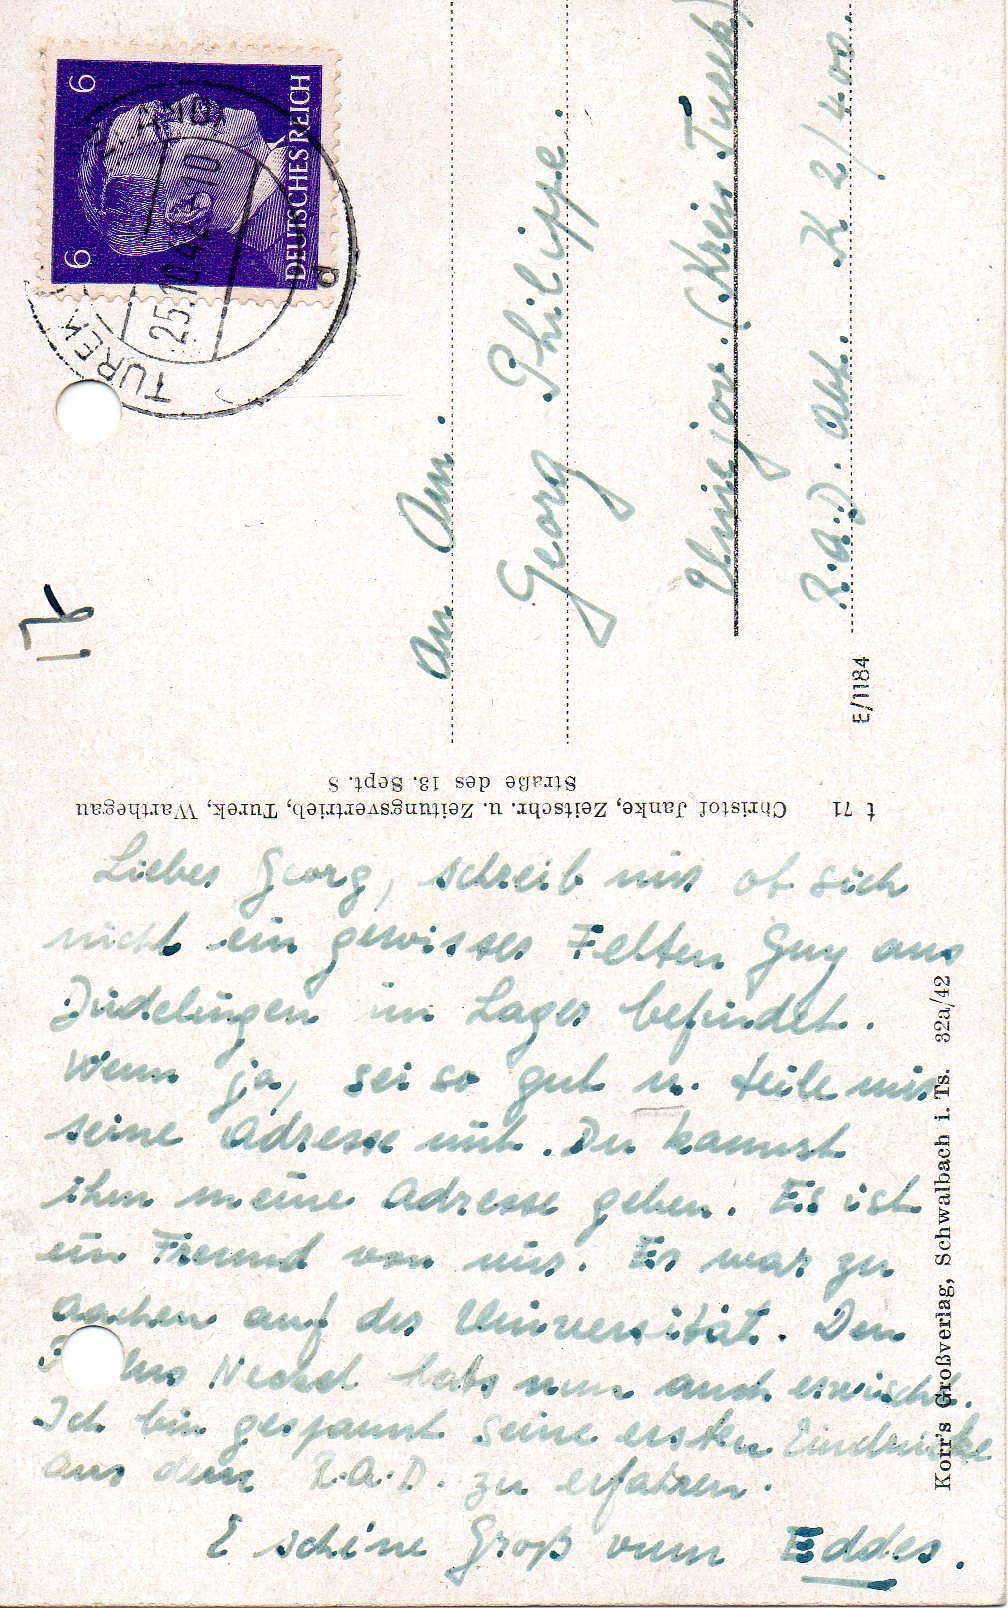 Liebes Georg, schreib mir ob sich
nicht ein gewisser Felten Guy aus
Düdelingen im Lager befindet.
Wenn ja, sei so gut u. teile mir
seine Adresse mit. Du kannst
ihm meine Adresse geben. Es ist
ein Freund von mir. Er war zu
Aachen auf der Universität. Den
Neckel hats nun auch erwischt.
Ich bin gespannt seine ersten Eindrücke
aus dem R.A.D. zu erfahren.
E schéine Groß vum Eddes.
t 71 Christof Janke, Zeitschr. u. Zeitungsvertrieb, Turek, Warthegau
Straße des 13. Sept. 8
Korr's Großverlag, Schwalbach i. Ts. 32a/42
E/1184
DEUTSCHES REICH
6 6
TUREK
25.10.42-10
d
17
An Am.
Georg Philippe.
Uniejow. (Kreis Turek)
R.A.D. Abt. K 2/400.